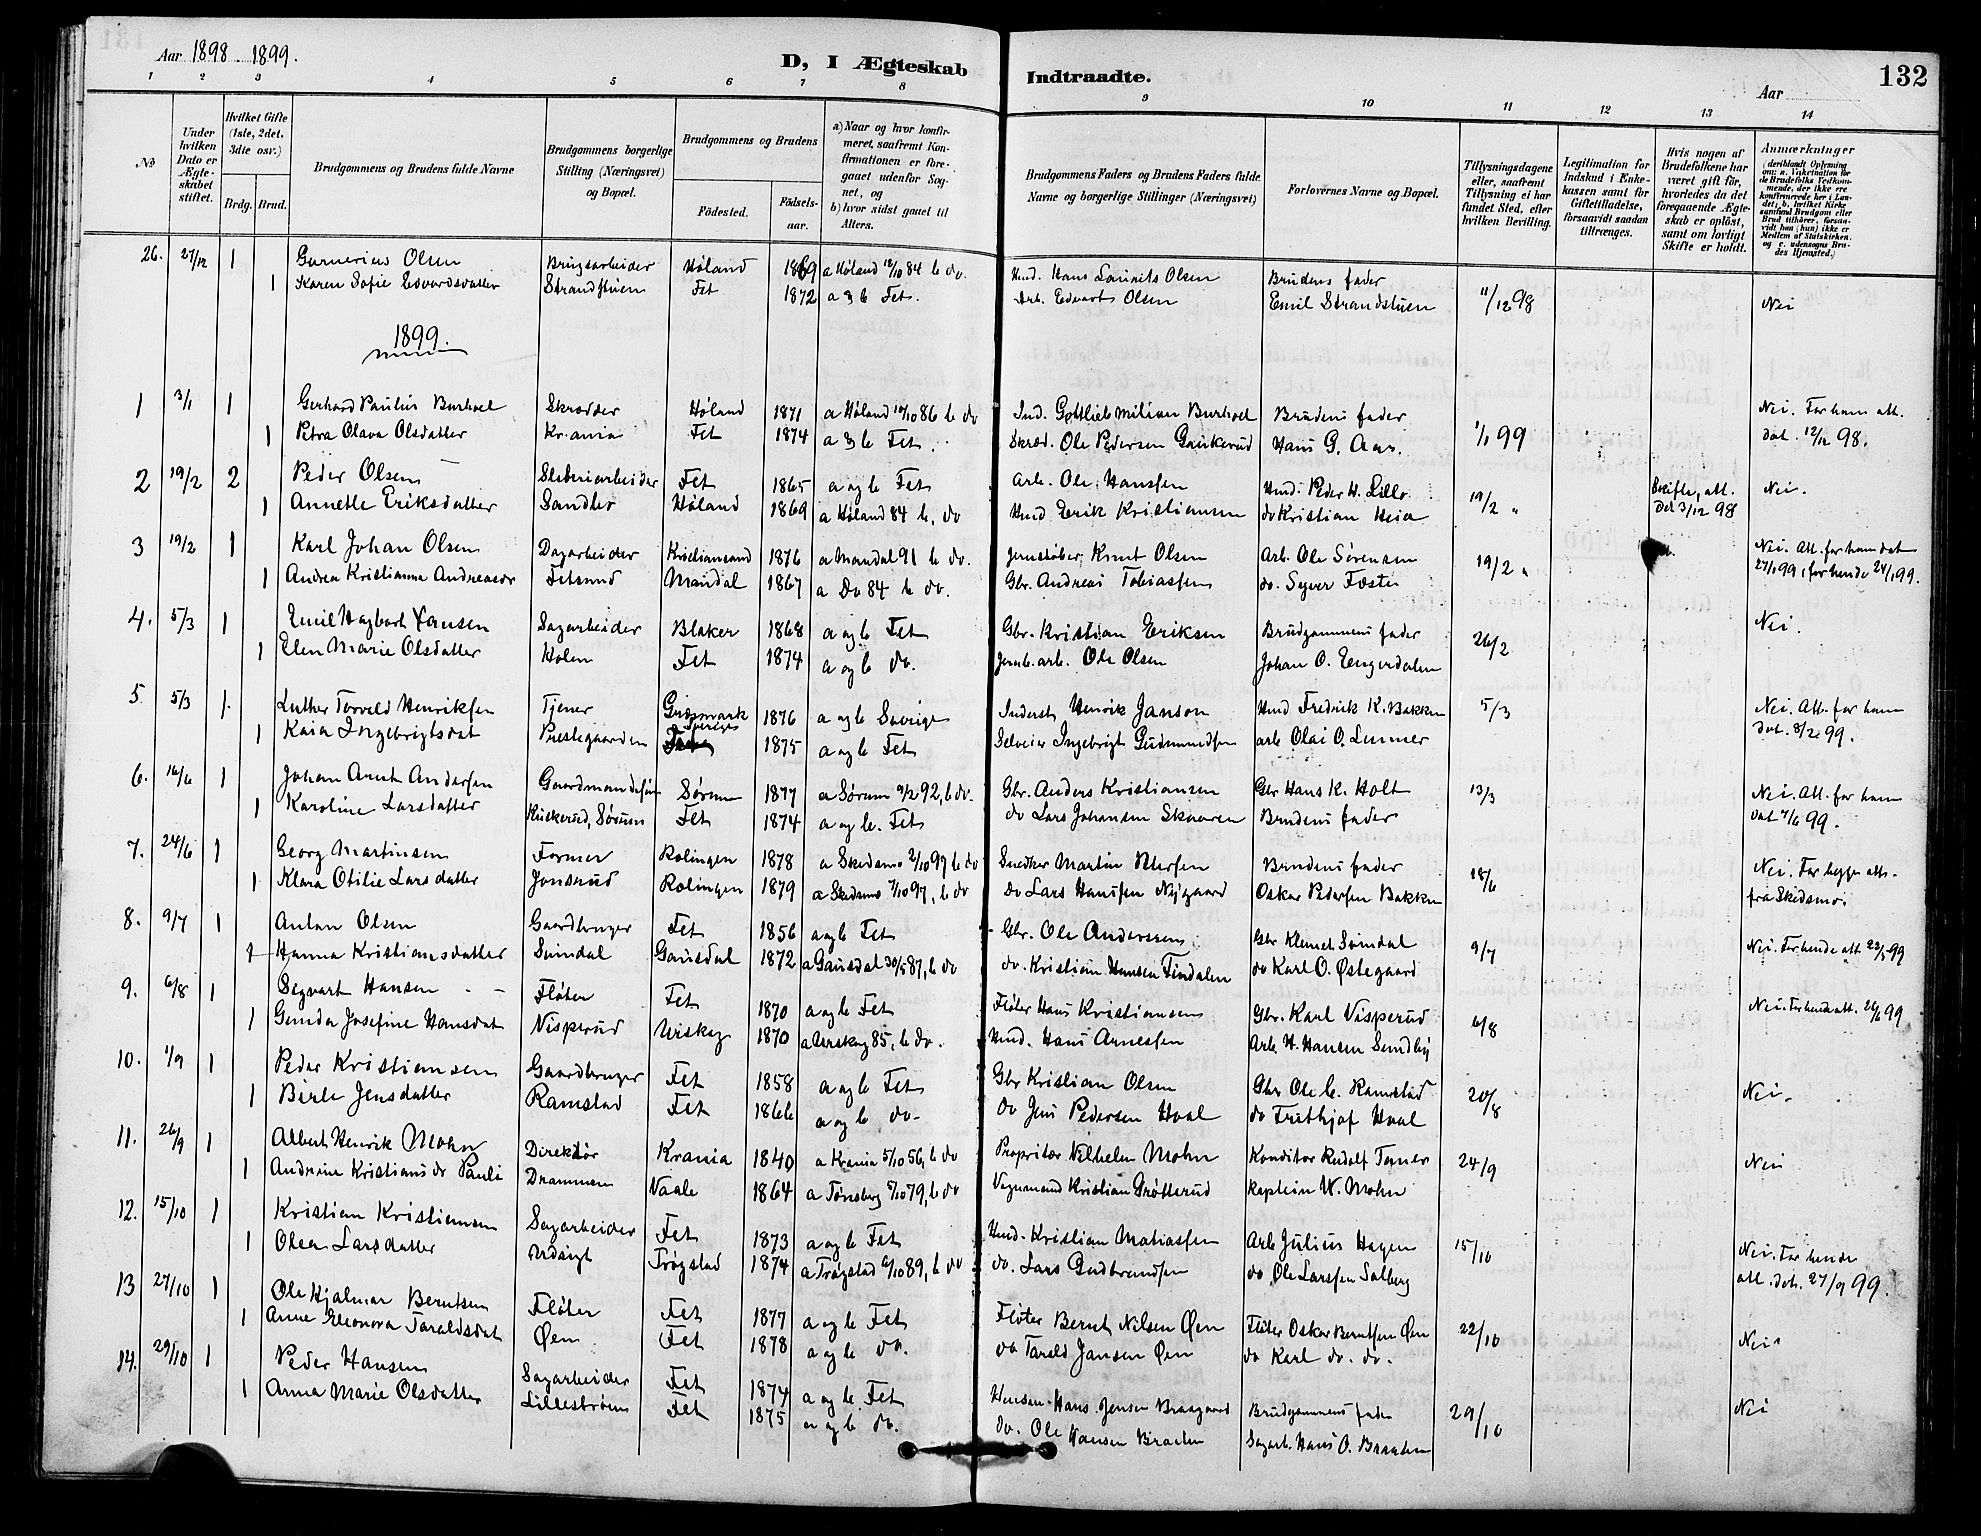 Aar 1898-1899. D, I Ægteskab Indtraadte. Aar 132
1 2 3 4 5 6 7 8 9 10 11 12 13 14
No
Under hvilken Dato er Ægteskabet stiftet.
Hvilket Gifte (1ste, 2det, 3die osv.)
Brdg. Brud.
Brudgommens og Brudens fulde Navne
Brudgommens borgerlige Stilling (Næringsvei) og Bopæl.
Brudgommens og Brudens
Fødested. Fødselsaar.
a) Naar og hvor konfirmeret, saafremt Konfirmationen er foregaaet udenfor Sognet, og
b) hvor sidst gaaet til Alters.
Brudgommens Faders og Brudens Faders fulde Navne og borgerlige Stillinger (Næringsvei)
Forlovernes Navne og Bopæl.
Tillysningsdagene eller, saafremt Tillysning ei har fundet Sted, efter hvilken Bevilling.
Legitimation for Indskud i Enkekassen samt for Giftetilladelse, forsaavidt saadan tiltrænges.
Hvis nogen af Brudefolkene har været gift før, hvorledes da det foregaaende Ægteskab er opløst, samt om lovligt Skifte er holdt.
Anmærkninger (deriblandt Oplysning om: a. Vakcination for de Brudefolks Vedkommende, der ikke ere konfirmerede her i Landet; b. hvilket Kirkesamfund Brudgom eller Brud tilhører, forsaavidt han (hun) ikke er Medlem af Statskirken, og c. udensogns Brudes Hjemsted.)
26. 27/12 1 Gunerius Olsen Brugsarbeider Høland 1869 a Høland 12/10 84 b do. Hmd. Hans Laurits Olsen Brudens fader 11/12 98 Nei
1 Karen Sofie Edvardsdatter Strandstuen Fet 1872 a & b Fet. Arb. Edvart Olsen Emil Strandstuen
1899.
1 3/1 1 Gerhard Paulius Burhoel Skrædder Høland 1871 a Høland 10/10 86 b do Ind. Gottlieb Milian Burhoel Brudens fader 1/1 99 Nei. For ham att.
1 Petra Olava Olsdatter Kr.ania Fet 1874 a & b Fet. Skræd. Ole Pedersen Gaukerud Hans G. Aas. dat. 12/12 98.
2 19/2 2 Peder Olsen Sliberiarbeider Fet 1865 a og b Fet Arb. Ole Hanssen Hmd. Peder H. Lillo 19/2 " Skifte, att. Nei.
1 Annette Eriksdatter Sandler Høland 1869 a Høland 84 b, do Hmd Erik Kristiansen do Kristian Heia det 3/12 98
3 19/2 1 Karl Johan Olsen Dagarbeider Kristiansand 1876 a Mandal 91 b do. Jernstøber Knut Olsen Arb. Ole Sørensen 19/2 " Nei. Att. for ham dat
1 Andrea Kristianna Andreasdr Fetsund Mandal 1867 a Do 84 b do. Gbr. Andreas Tobiassen do. Syver Fæster 27/1 99, for hende 24/1 99.
4. 5/3 1 Emil Hagbart Jansen Sagarbeider Blaker 1868 a og b Fet Gbr. Kristian Eriksen Brudgommens fader 26/2 Nei.
1 Elen Marie Olsdatter Holen Fet 1874 a og b do. Jernb.arb. Ole Olsen Johan O. Tengerdalen
5. 5/3 1. Luther Torvald Henriksen Tjener Græsmark Sverige 1876 a og b Sverige Inderst Henrik Janson Hmd Fredrik K. Bakken 5/3 Nei. Att. for ham
1 Kaia Ingebrigtsdat Prestegaarden Fet 1875 a og b Fet Selveier Ingebrigt Gudmundsen arb Olai O. Lunner dat. 8/2 99.
6. 16/6 1 Johan Arnt Andersen Gaardmandssøn Sørum 1877 a Sørum 9/2 92, b do. Gbr. Anders Kristiansen Gbr Hans K. Holt 13/3 Nei. Att. for ham
1 Karoline Larsdatter Kuskerud, Sørum Fet 1874 a og b. Fet do Lars Johansen Skaaren Brudens fader dat 7/6 99.
7. 24/6 1 Georg Martinsen Former Rælingen 1878 a Skedsmo 2/10 99 b do Snedker Martin Petersen Brudens fader 18/6 Nei. For begge att.
1 Klara Otilie Larsdatter Jonsrud Rælingen 1879 a Skedsmo 7/10 97, b do do Lars Hanssen Nygaard Oskar Pedersen Bakken fra Skedsmo.
8. 9/7 1 Anton Olsen Gaardbruger Fet 1856 a og b Fet Gbr. Ole Anderssen Gbr Klemet Svindal 9/7 Nei. For hende att 23/5 99
1 Hanna Kristiansdatter Svindal Gausdal 1872 a Gausdal 30/5 87, b do do. Kristian Hansen Findalen do Karl O. Østegaard
9. 6/8 1 Sigvart Hansen Fløter Fet 1870 a og b Fet Fløter Hans Kristiansen Gbr. Karl Visperud 6/8 Nei. For hende att. 26/6 99
1 Gunda Josefine Hansdat Visperud Urskog 1870 a Urskog 85, b do. Hmd. Hans Arnessen Arb. H. Hansen Sundby
10. 1/9 1 Peder Kristiansen Gaardbruger Fet 1858 a og b Fet Gbr Kristian Olsen Gbr Ole C. Ramstad 20/8 Nei.
1 Birte Jensdatter Ramstad Fet 1866 a og b do. do Jens Pedersen Hval do Frithjof Hval
11. 26/9 1 Albert Henrik Mohn Direktør Krania 1840 a Krania 5/10 56, b do Propritær Vilhelm Mohn Konditor Rudolf Tømer 24/9 Nei
1 Andrine Kristiansdr Pauli Drammen Vaale 1864 a Tønsberg 5/10 79, b do Vognmand Kristian Grøtterud Kaptein W. Mohn
12. 15/10 1 Kristian Kristiansen Sagarbeider Fet 1873 a og b Fet Hmd. Kristian Matiassen Arb Julius Hagen 15/10 Nei. For hende
1 Olea Larsdatter Udsigt Trøgstad 1874 a Trøgstad 6/10 89, b do do. Lars Gudbrandsen do Ole Larssen Solberg att. dat. 27/9 99.
13 27/10 1 Ole Hjalmar Berntsen Fløter Fet 1877 a og b Fet Fløter Bernt Nilsen Øen Fløter Oskar Berntsen Øen 22/10 Nei
1 Anne Eleonora Taraldsdat Øen Fet 1878 a og b do. do Tarald Jansen Øen do Karl do. do.
14. 29/10 1 Peder Hansen Sagarbeider Fet 1874 a og b Fet Husman Hans Jensen Braagaard Brudgommens fader 29/10 Nei
1 Anna Marie Olsdatter Lillestrøm Fet 1875 a og b do. do. Ole Hansen Braaten Sagarb. Hans O. Braaten